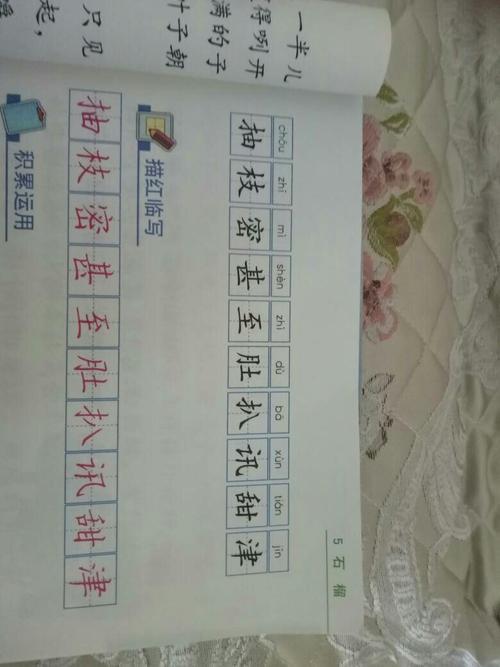 一半儿
得咧开
满的子
叶子朝
只见
起，
5 石榴
chōu zhī mì shèn zhì dù bā xùn tián jīn
抽枝密甚至肚扒讯甜津
描红临写
抽枝密甚至肚扒讯甜津
积累运用